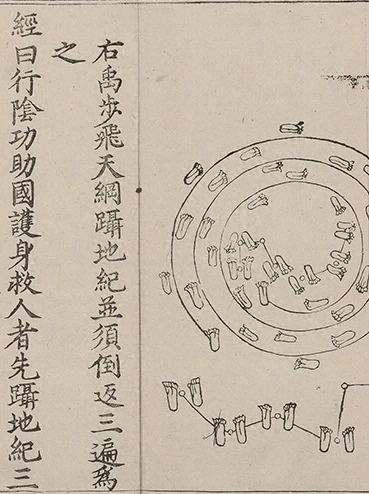 右禹步飛天綱躡地紀並須倒返三遍爲
之
經曰行陰功助國護身救人者先躡地紀三